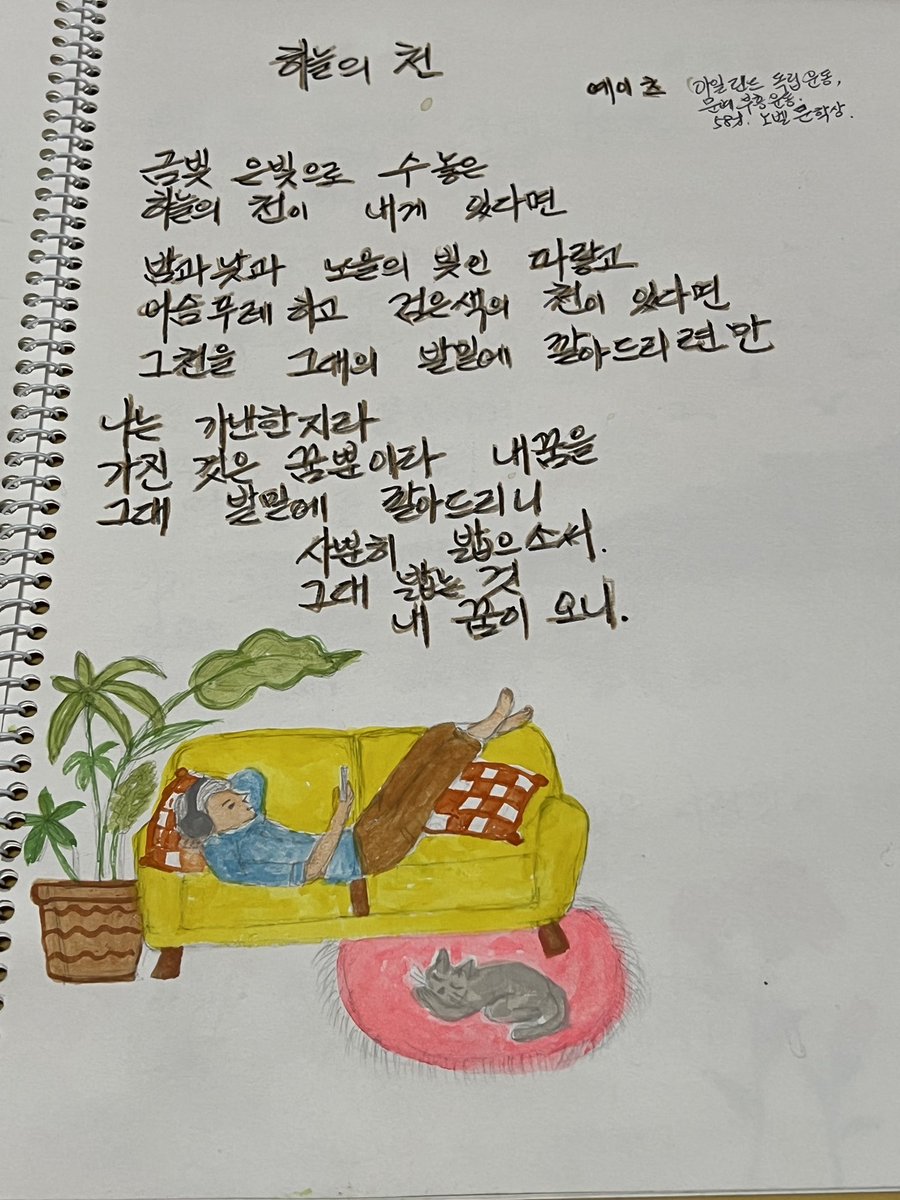 하늘의 천
예이츠
아일랜드 독립운동,
문예부흥운동.
58세. 노벨문학상.
금빛 은빛으로 수놓은
하늘의 천이 내게 있다면
밤과낮과 노을의 빛인 파랗고
어슴푸레하고 검은색의 천이 있다면
그천을 그대의 발밑에 깔아드리련만
나는 가난한지라
가진 것은 꿈뿐이라 내꿈을
그대 발밑에 깔아드리니
사뿐히 밟으소서.
그대 밟는 것
내 꿈이 오니.